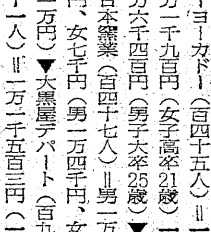 ーヨーカドー（百四十五人）＝
万一千九百円（女子高卒21歳）
万六千四百円（男子大卒25歳）▼
日本窯業（百四十七人）＝男一万
円、女七千円（男一万四千円、女
一万円）▼大黒屋デパート（百九
十一人）＝一万二千五百三円（一